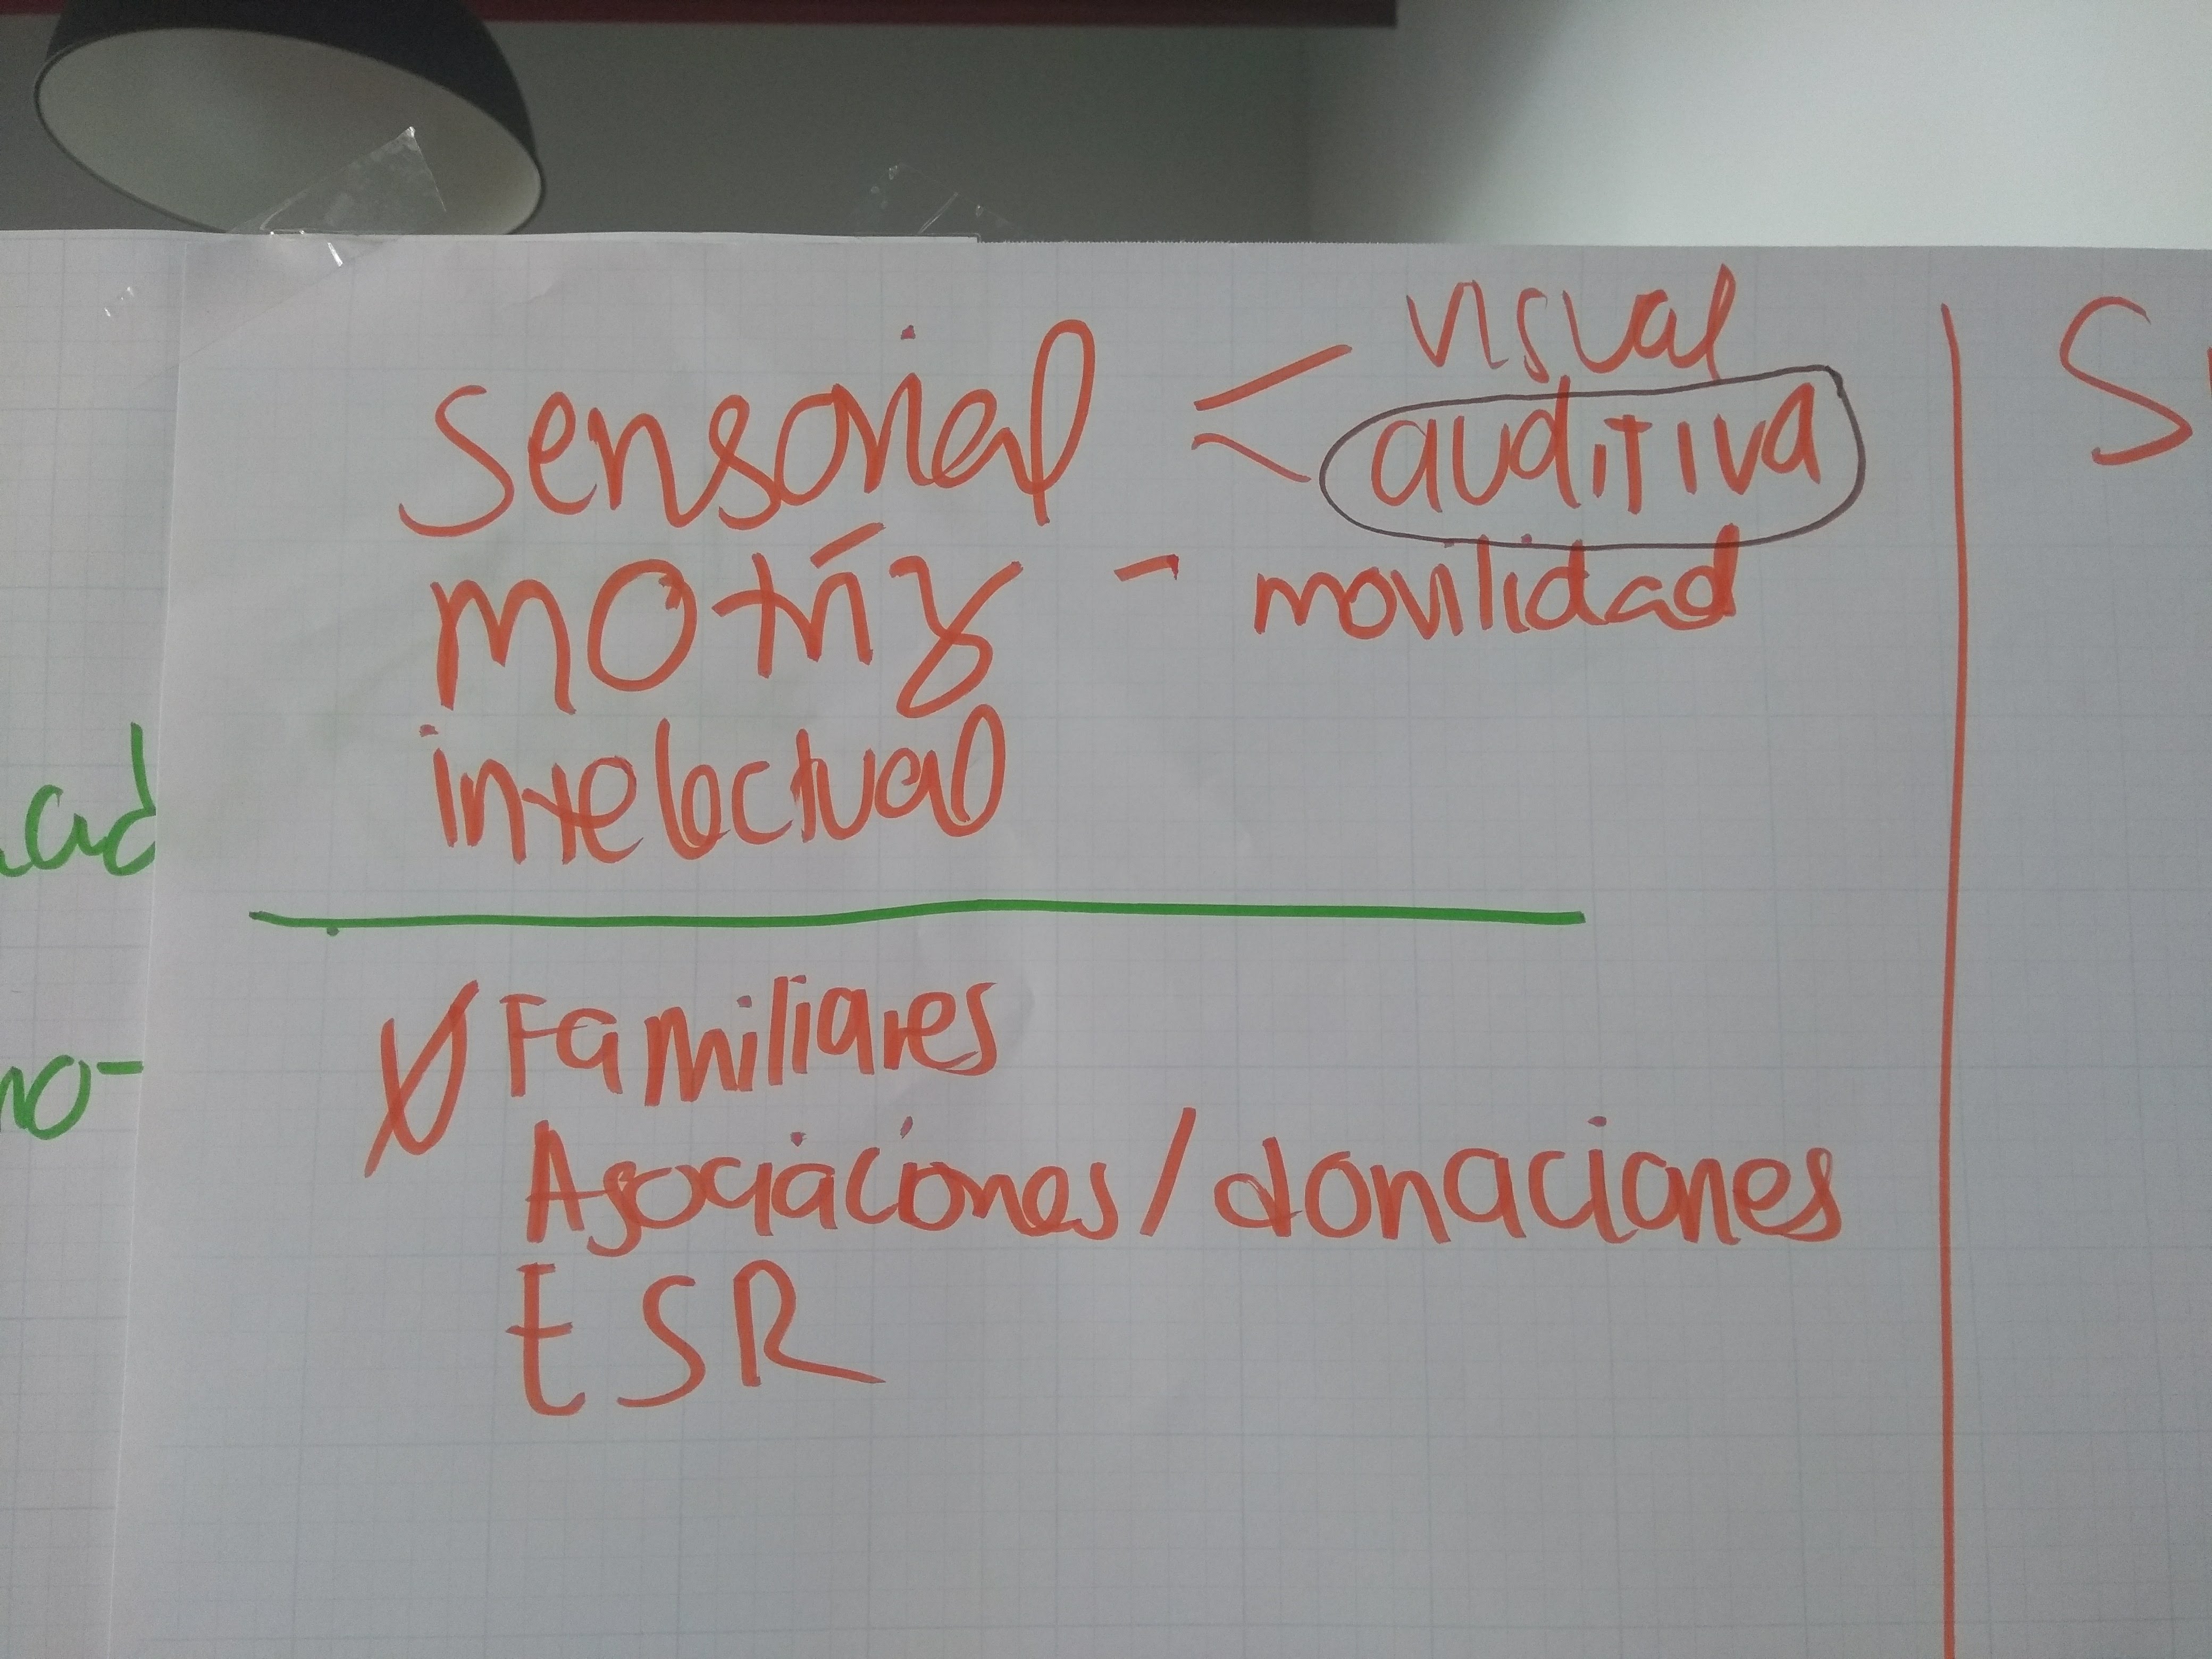 sensorial < visual
auditiva
motríz - movilidad
intelectual
Familiares
Asociaciones/donaciones
ESR